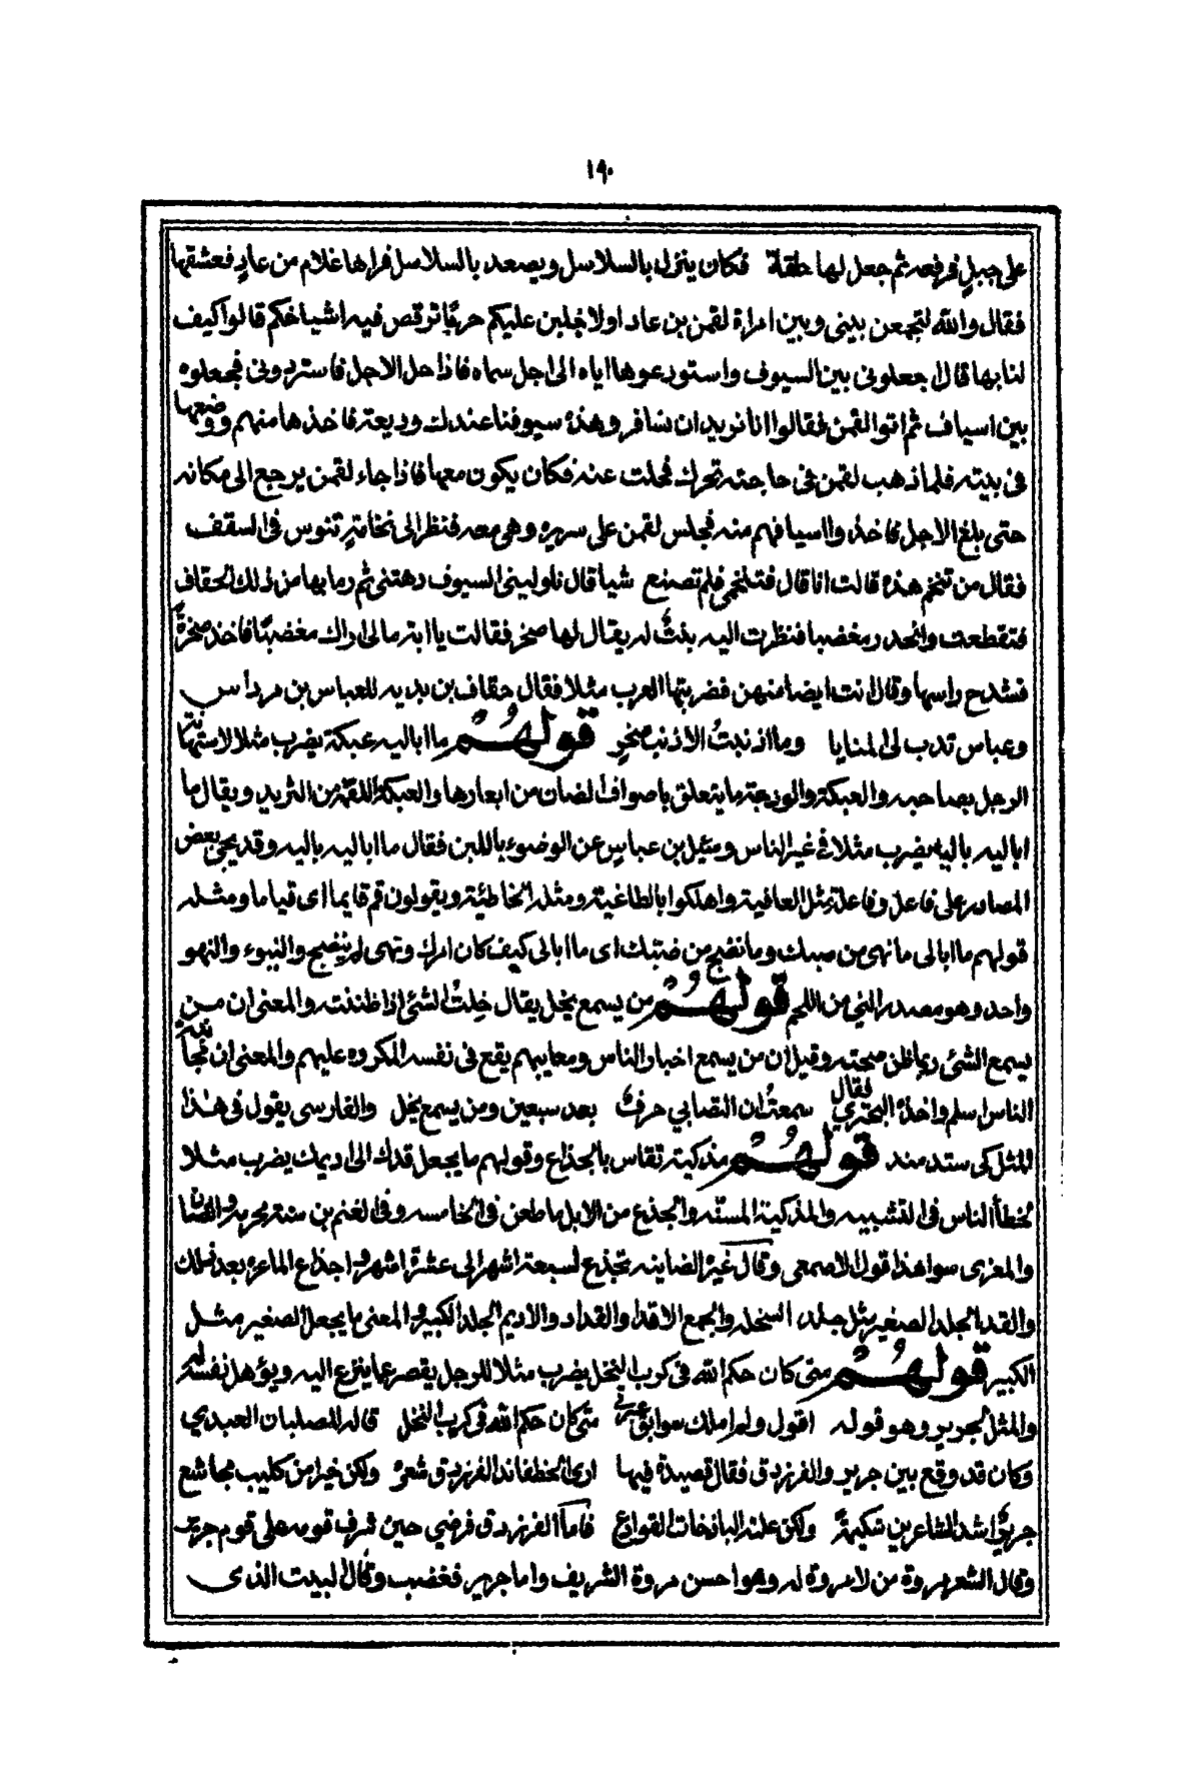 ١٩٠
على جبل فرفعه ثم جعل لها حلقة فكان ينزل بالسلاسل ويصعد بالسلاسل فراها غلام من عاد فعشقها
فقال والله لتجمعن بينى وبين امراة لقمن بن عاد اولاجلبن عليكم حربًا ترقص فيه اشياخكم قالوا كيف
لنا بها قال اجعلونى بين السيوف واستودعوها اياه الى اجل سماه فاذا حل الاجل فاستردونى فجعلوه
بين اسياف ثم اتوا لقمن فقالوا انا نريد ان نسافر وهذه سيوفنا عندك وديعة فاخذها منهم ووضعها
فى بيته فلما ذهب لقمن فى حاجته تحرك فحلت عنه فكان يكون معها فاذا جاء لقمن يرجع الى مكانه
حتى بلغ الاجل فاخذوا اسيافهم منه فجلس لقمن على سريره وهى معه فنظر الى نخامة تنوس فى السقف
فقال من تنخم هذه قالت انا قال فتنخمى فلم تصنع شيا قال ناولينى السيوف دهتنى ثم رما بها من ذلك الحقاف
فتقطعت وانحدر مغضبا فنظرت اليه بنتٌ له يقال لها صخر فقالت يا ابة مالى اراك مغضبًا فاخذ صخرةً
فشدح راسها وقال انت ايضا منهن فضربتها العرب مثلا فقال حقاف بن بديه للعباس بن مرداس
وعباس تدب لى المنايا وما اذنبتُ الا ذنب صخرٍ قولهُم ما اباليه عبكة يضرب مثلا لاستهانته
الرجل بصاحبه والعبكة والوذحة ما يتعلق باصواف الضان من ابعارها والعبكة اللقمة من الثريد ويقال ما
اباليه بالية يضرب مثلا فى غير الناس وسئل بن عباس عن الوضوء باللبن فقال ما اباليه باليه وقد يجى بعض
المصادر على فاعل وفاعلة مثل العافية واهلكوا بالطاغية ومثله الخاطئية ويقولون قم قايما اى قياما ومثله
قولهم ما ابالى ما نهى من ضبك وما نضج من ضبك اى ما ابالى كيف كان امرك ونهى لم ينضج والنيوء والنهو
واحد وهو مصدر النى من اللحم قولهُم من يسمع يخل يقال خِلتُ الشئ اذا ظننته والمعنى ان من
يسمع الشئ ربما ظن صحته وقيل ان من يسمع اخبار الناس ومعايبهم يقع فى نفسه المكروه عليهم والمعنى ان مجانبة
الناس اسلم واخذه البحترى فقال سمعتُ ان التصابي حرفٌ بعد سبعين ومن يسمع يخل والفارسى يقول فى هذا
المثل كى ستد مند قولهُم مذكية تقاس بالجذاع وقولهم ما يجعل قدك الى اديمك يضرب مثلا
لخطأ الناس فى التشبيه والمذكية المسنه والجذع من الابل ما طعن فى الخامسه وفى الغنم بن سنة محرمه والضان
والمعزى سوا هذا قول الاصمعى وقال غيره الضاينه تجذع لسبعة اشهر الى عشرة اشهر واجذاع الماعزه بعد ذلك
والقد الجلد الصغير مثل جلد السخله والجمع الاقدا والقداد والاديم الجلد الكبير والمعنى ما يجعل الصغير مثل
الكبير قولهُم متى كان حكم الله فى كرب النخل يضرب مثلا للرجل يقصر عما ينزع اليه ويؤهل نفسه له
والمثل لجرير وهو قوله اقول ولم املك سوابق عبرتى متى كان حكم الله فى كرب النخل قاله للصلتان العبدي
وكان قد وقع بين جرير والفرزدق فقال قصيدة فيها ارى الخطفا بذ الفرزدق شعرُه ولكن خيرا من كليب مجاشع
جريرٌ اشد الشاعرين شكيمةً ولكن علته الباذخات القوارعُ فاما الفرزدق فرضي حين شرف قومه على قوم جرير
وقال الشعر مروة من لا مروة له وهو احسن مروة الشريف واما جرير فغضب وقال البيت الذى